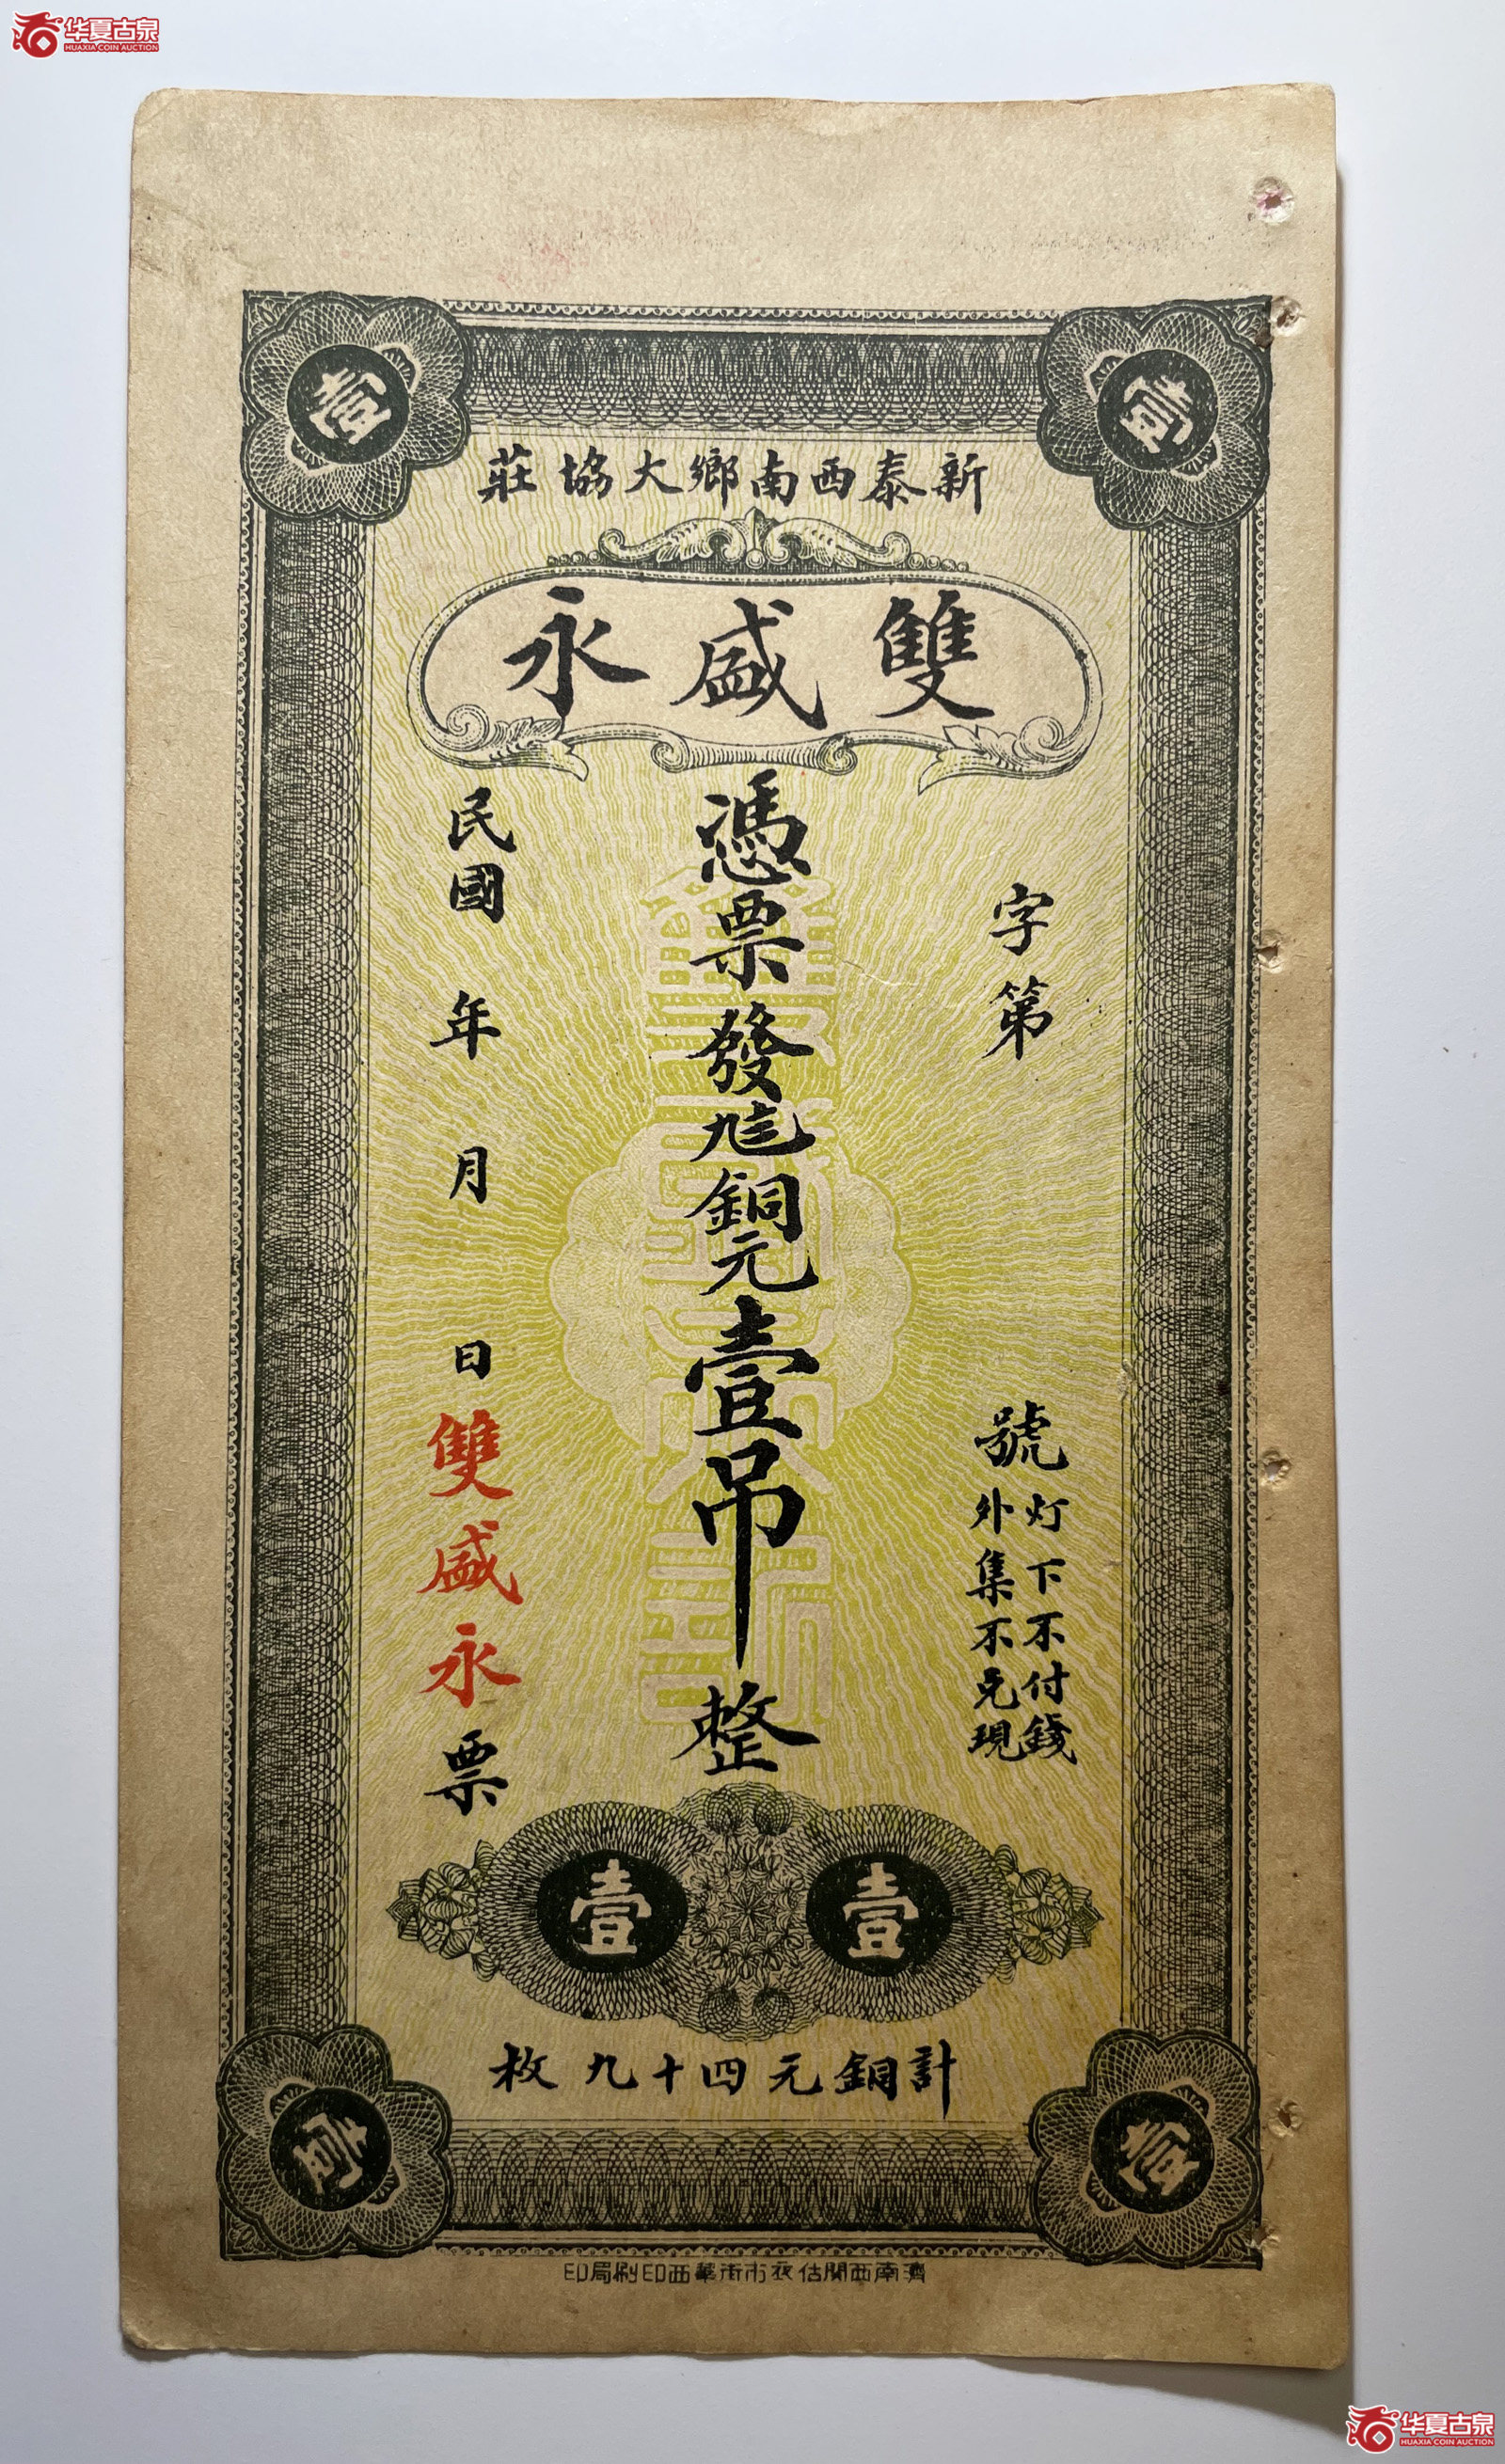 华夏古泉
HUAXIA COIN AUCTION
壹
壹
新泰西南鄉大協莊
雙盛永
字第
號
灯下不付錢
外集不兑現
憑票發
銅元壹吊整
民國
年
月
日
雙盛永票
壹
壹
計銅元四十九枚
壹
壹
濟南西關估衣市街華西印刷局印
华夏古泉
HUAXIA COIN AUCTION